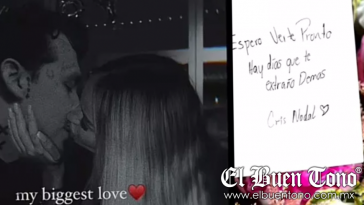 Espero Verte Pronto
Hay dias que te
extraño Demas
Cris Nodal ♡
my biggest love❤️
El Buen Tono
www.elbuentono.com.mx